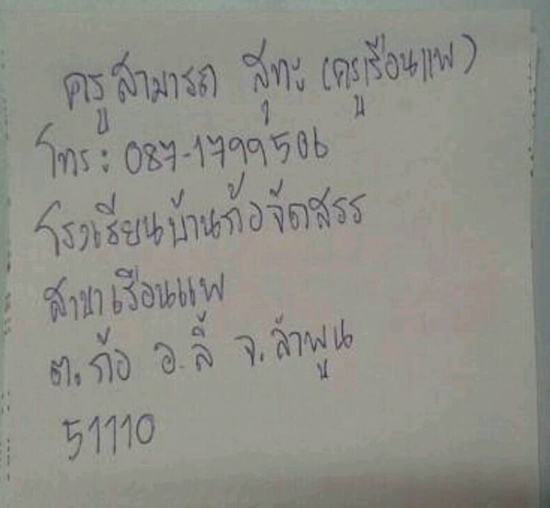 ครูสามารถ สุทะ (ครูเรือนแพ)
โทร: 087-1799506
โรงเรียนบ้านก้อจัดสรร
สาขาเรือนแพ
ต.ก้อ อ.ลี้ จ.ลำพูน
51110